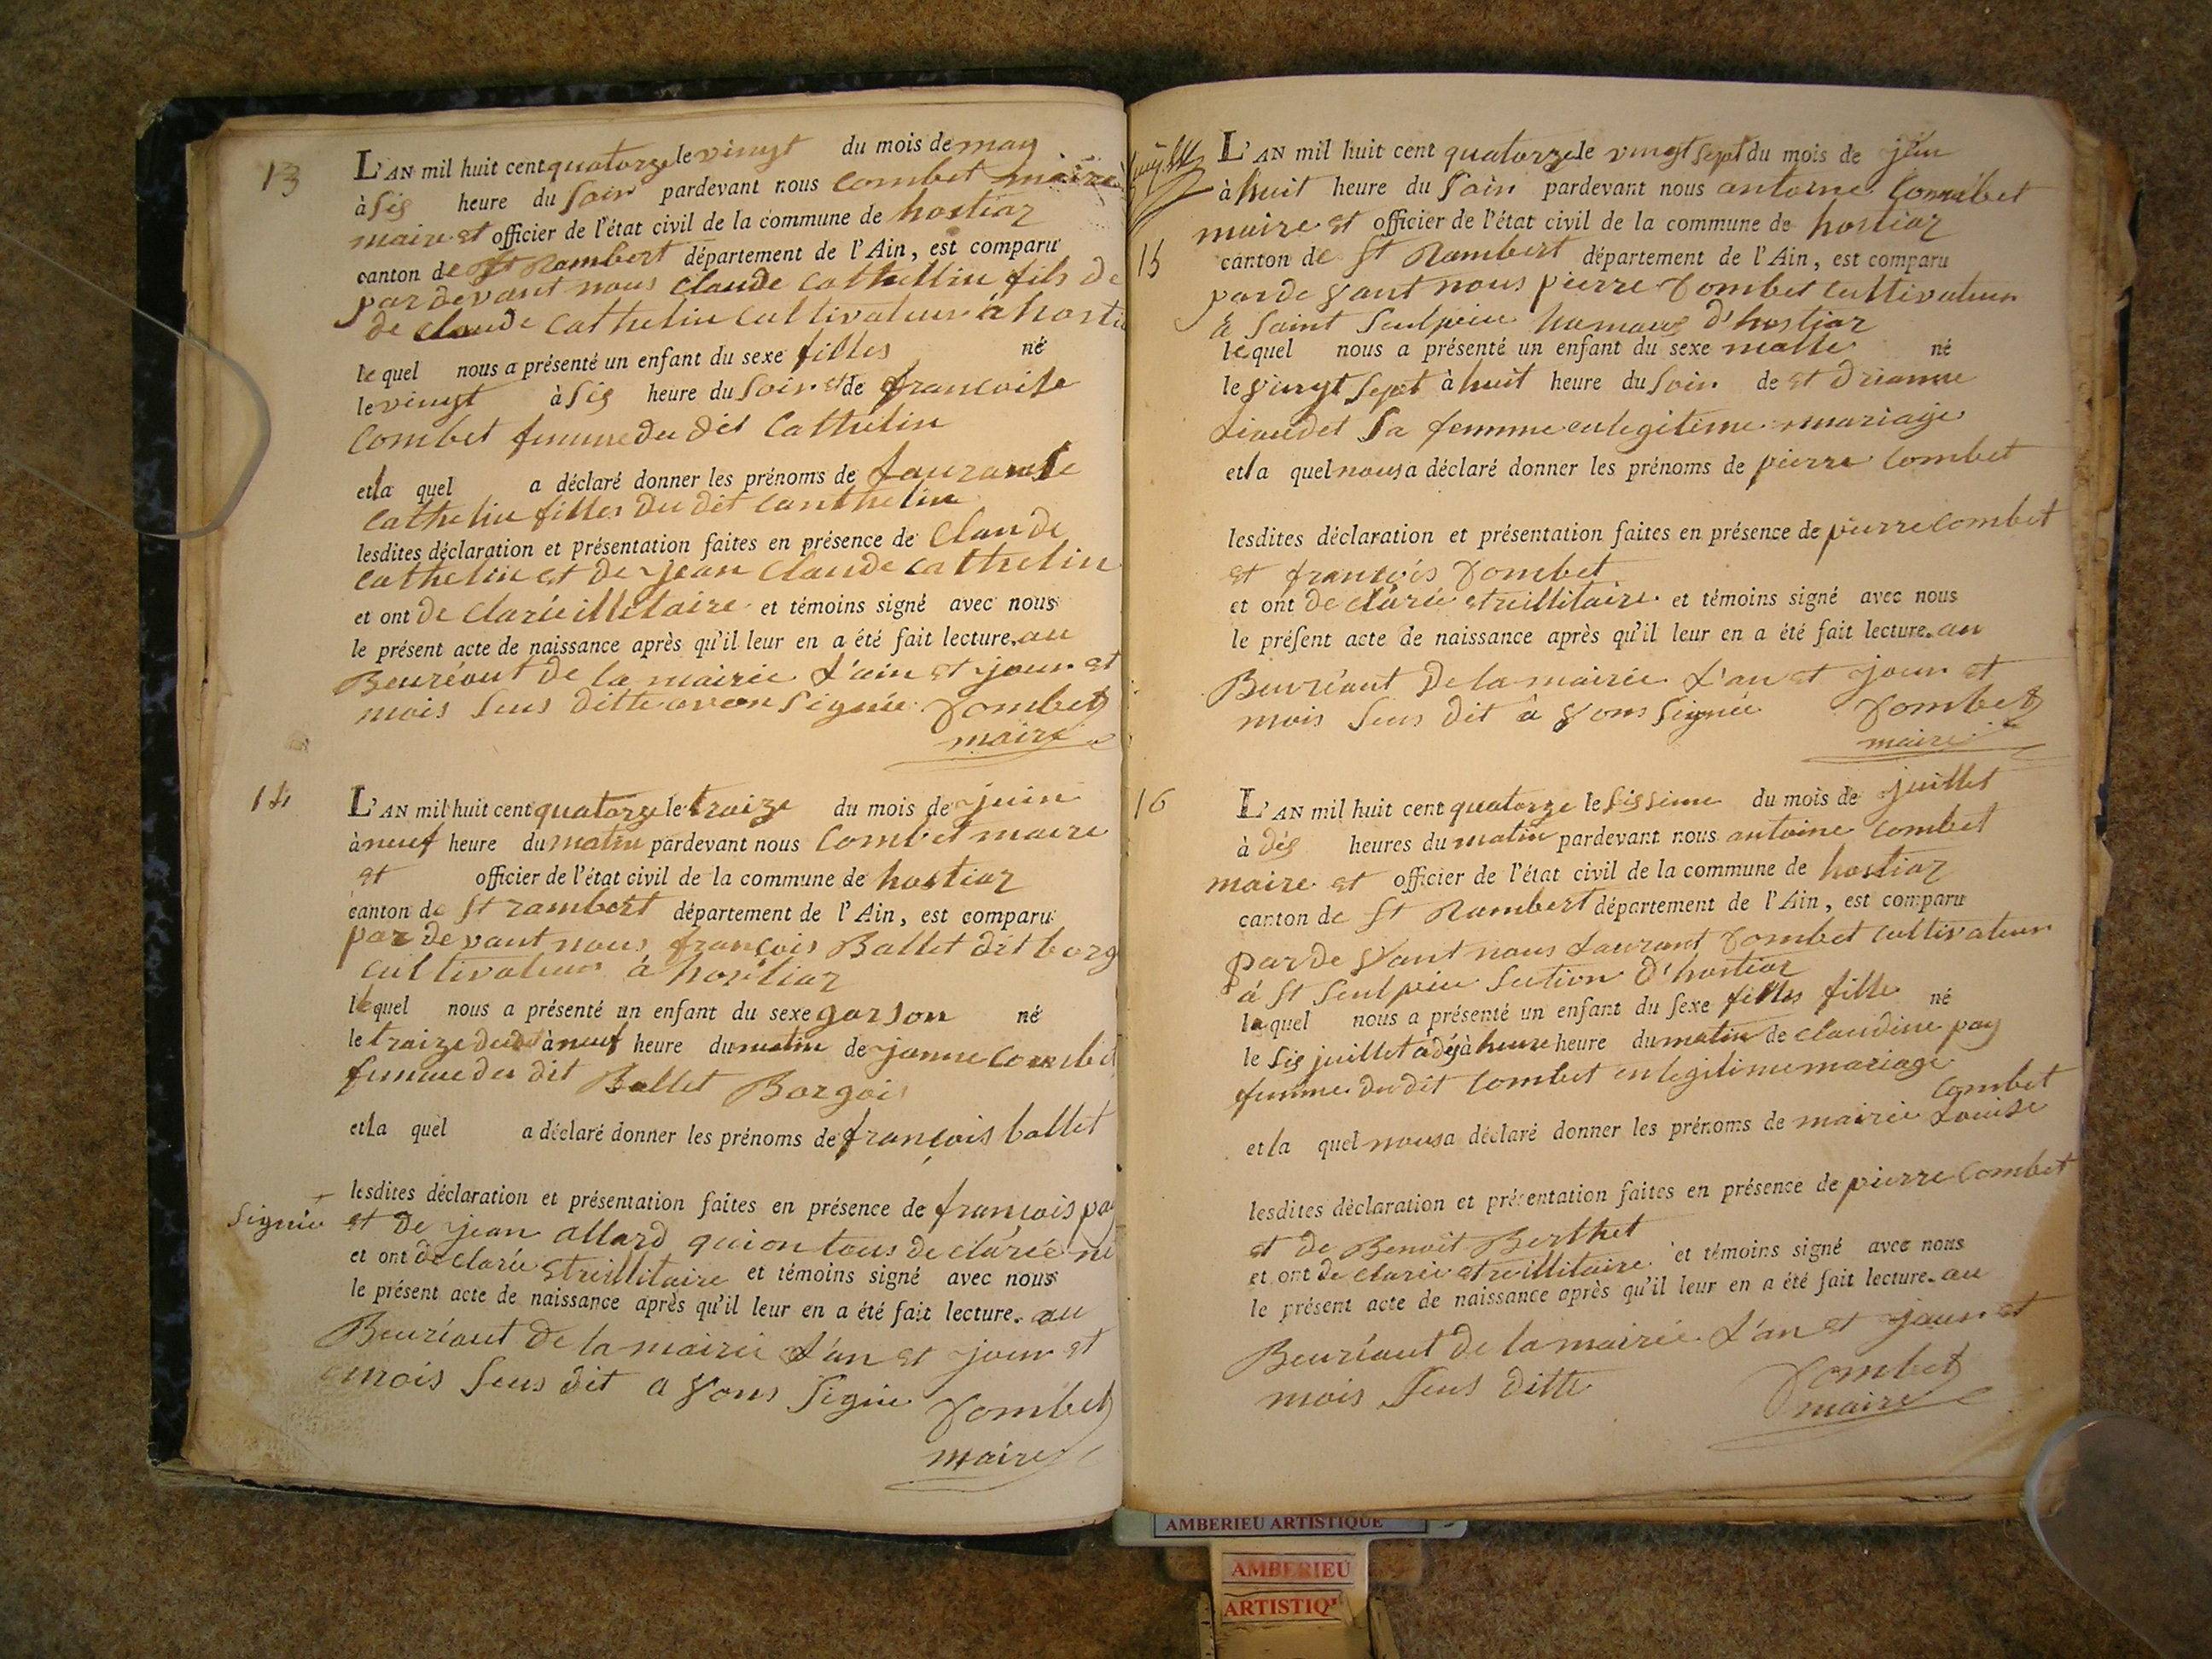 13
L'AN mil huit cent quatorze le vingt du mois de may
à sis heure du soir pardevant nous Combet maire
maire et officier de l'état civil de la commune de hostiaz
canton de St Rambert département de l'Ain, est comparu
par devant nous Claude Cathellin fils de
de Claude Cathelin cultivateur à hosti
lequel nous a présenté un enfant du sexe filles né
le vingt à sis heure du soir et de francoise
Combet femme du dit Cathelin
et la quel a déclaré donner les prénoms de
Cathelin filles du dit Canthelin
lesdites déclaration et présentation faites en présence de Claude
Cathelin et de jean Claude Cathelin
et ont de clarée illitaire et témoins signé avec nous
le présent acte de naissance après qu'il leur en a été fait lecture. au
Beuréaut de la mairie L'ain et jour et
mois sus ditte avon signée Combet
maire
14
L'AN mil huit cent quatorze le traize du mois de juin
à neuf heure du matin pardevant nous Combet maire
et officier de l'état civil de la commune de hostiaz
canton de St rambert département de l'Ain, est comparu
par devant nous françois Ballet dit borg
cultivateur à hostiaz
lequel nous a présenté un enfant du sexe garson né
le traize dudit à neuf heure du matin de janne Combet
femme du dit Ballet Borgois
et la quel a déclaré donner les prénoms de françois ballet
lesdites déclaration et présentation faites en présence de françois pay
signée et de jean allard qui on tous de clarée ne
et ont de clarée etreillitaire et témoins signé avec nous
le présent acte de naissance après qu'il leur en a été fait lecture. au
Beuréaut de la mairie L'an et jour et
mois sus dit avons signée Combet
maire
15
L'AN mil huit cent quatorze le vingt sept du mois de juin
à huit heure du soir pardevant nous antoine Combet
maire et officier de l'état civil de la commune de hostiaz
canton de St Rambert département de l'Ain, est comparu
par de vant nous pierre Combet cultivateur
à Saint Seulpice d'hostiaz
lequel nous a présenté un enfant du sexe malle né
le vingt sept à huit heure du soir de et drianne
sa femme en legitime mariage
et la quel nous a déclaré donner les prénoms de pierre Combet
lesdites déclaration et présentation faites en présence de pierre Combet
et françois Combet
et ont de clarée etreillitaire et témoins signé avec nous
le présent acte de naissance après qu'il leur en a été fait lecture. au
Beuréaut de la mairie L'an et jour et
mois sus dit à vons signée Combet
maire
16
L'AN mil huit cent quatorze le sissime du mois de juillet
à dés heures du matin pardevant nous antoine Combet
maire et officier de l'état civil de la commune de hostiaz
canton de St Rambert département de l'Ain, est comparu
par de vant nous Laurant Combet cultivateur
à St Seulpice section d'hostiaz
laquel nous a présenté un enfant du sexe filles fille né
le sis juillet à dés à heure heure du matin de Claudine pay
femme du dit Combet en legitime mariage
Combet
et la quel nous a déclaré donner les prénoms de mairie Louise
lesdites déclaration et présentation faites en présence de pierre Combet
et de Benoit Berthet
et ont de clarée etreillitaire et témoins signé avec nous
le présent acte de naissance après qu'il leur en a été fait lecture. au
Beuréaut de la mairie L'an et jour et
mois sus ditte Combet
maire
AMBERIEU ARTISTIQUE
AMBERIEU
ARTISTIQ